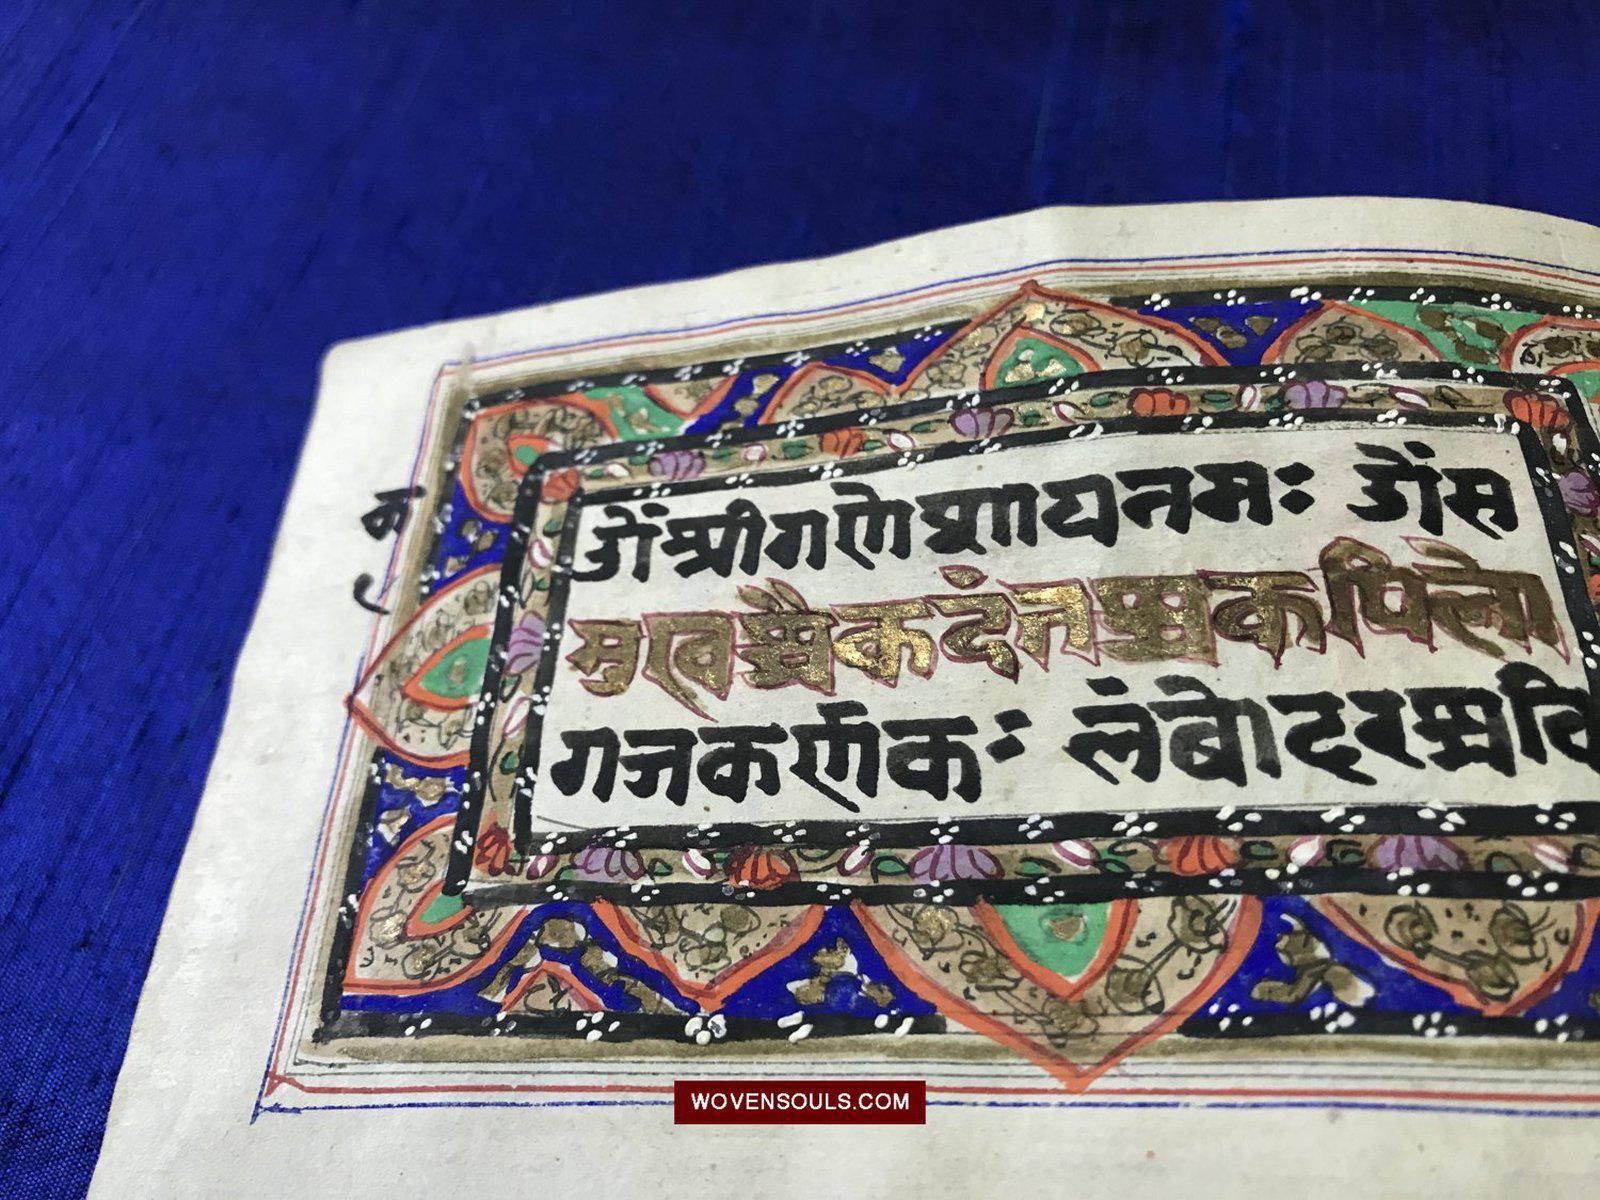 ॐश्रीगणेशायनमः ॐसु
मुखश्चैकदंतश्चकपिलो
गजकर्णकः लंबोदरश्चवि
WOVENSOULS.COM